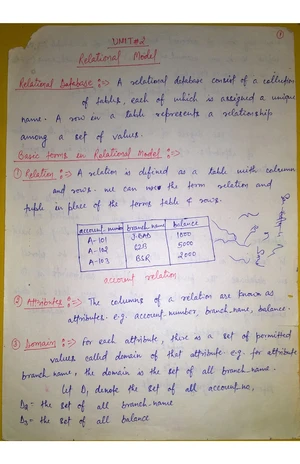 ①
UNIT #2
Relational Model
Relational Database :=> A relational database consist of a collection
of tables, each of which is assigned a unique
name. A row in a table represents a relationship
among a set of values.
Basic terms in Relational Model :=>
① Relation :=> A relation is defined as a table with columns
and rows. we can use the term relation and
tuple in place of the terms table & rows.
account_number branch_name balance
A-101 1000
A-102 5000
A-103 BSR 2000
account relation
② Attributes :=> The columns of a relation are known as
attributes. e.g. account-number, branch_name, balance.
③ Domain :=> For each attribute, there is a set of permitted
values called domain of that attribute. e.g. for attribute
branch_name, the domain is the set of all branch_name.
Let D₁ denote the set of all account_no,
D₂ = the set of all branch_name
D₃ = the set of all balance